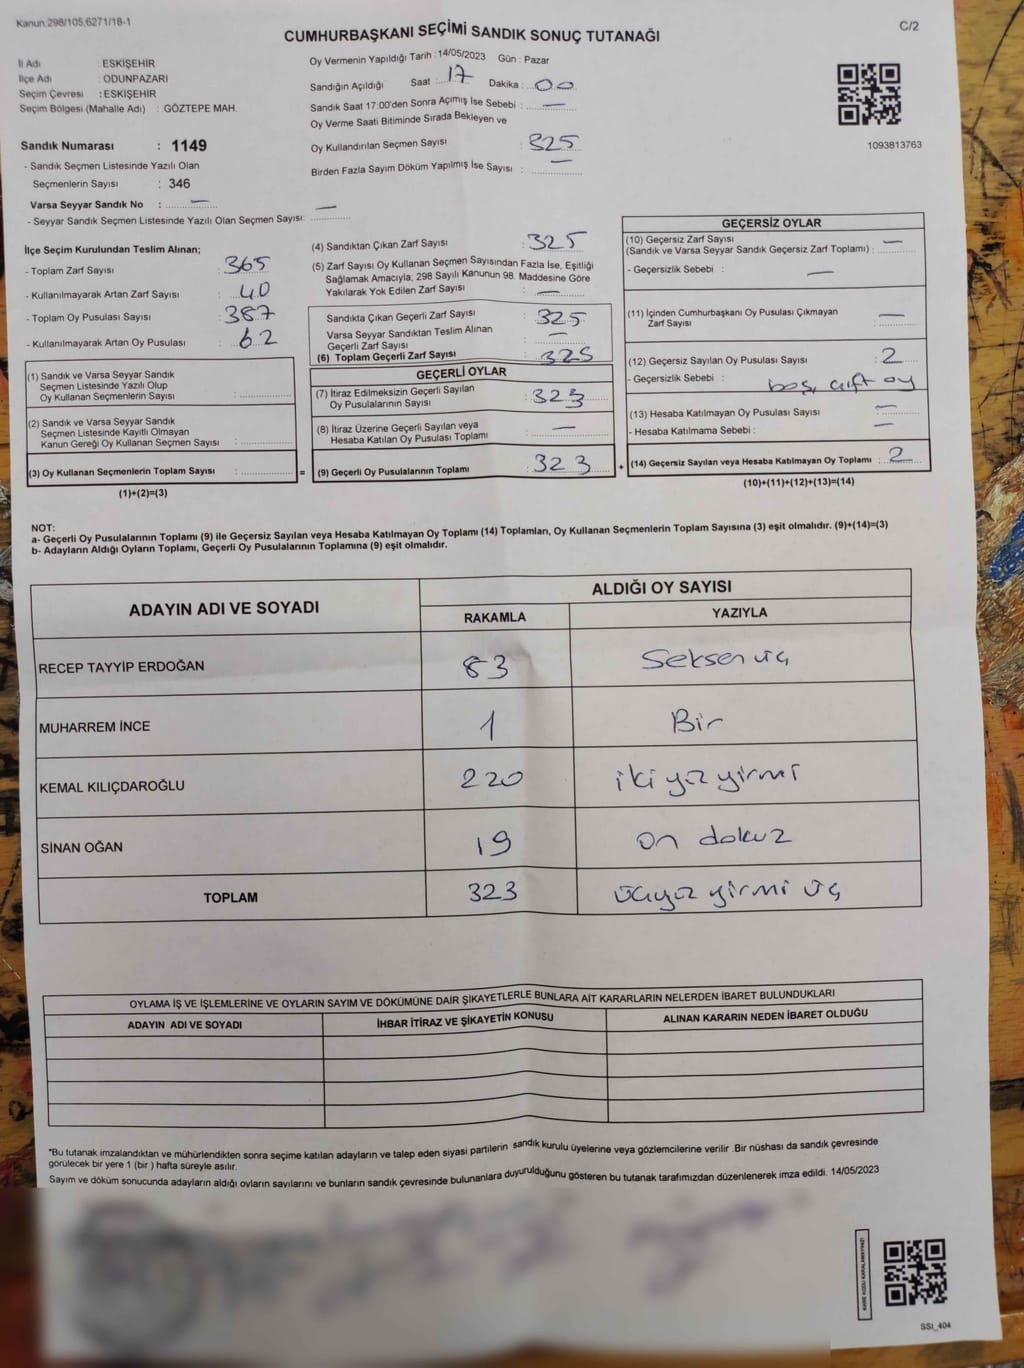 Kanun 298/105,6271/18-1
C/2
CUMHURBAŞKANI SEÇİMİ SANDIK SONUÇ TUTANAĞI
İl Adı : ESKİŞEHİR
İlçe Adı : ODUNPAZARI
Seçim Çevresi : ESKİŞEHİR
Seçim Bölgesi (Mahalle Adı) : GÖZTEPE MAH.
Sandık Numarası : 1149
- Sandık Seçmen Listesinde Yazılı Olan
Seçmenlerin Sayısı : 346
Varsa Seyyar Sandık No : —
- Seyyar Sandık Seçmen Listesinde Yazılı Olan Seçmen Sayısı: —
Oy Vermenin Yapıldığı Tarih : 14/05/2023 Gün : Pazar
Sandığın Açıldığı Saat : 17 Dakika : 00
Sandık Saat 17:00'den Sonra Açımış İse Sebebi : —
Oy Verme Saati Bitiminde Sırada Bekleyen ve
Oy Kullandırılan Seçmen Sayısı : 325
Birden Fazla Sayım Döküm Yapılmış İse Sayısı : —
1093813763
İlçe Seçim Kurulundan Teslim Alınan;
- Toplam Zarf Sayısı : 365
- Kullanılmayarak Artan Zarf Sayısı : 40
- Toplam Oy Pusulası Sayısı : 387
- Kullanılmayarak Artan Oy Pusulası : 62
(1) Sandık ve Varsa Seyyar Sandık
Seçmen Listesinde Yazılı Olup
Oy Kullanan Seçmenlerin Sayısı :
(2) Sandık ve Varsa Seyyar Sandık
Seçmen Listesinde Kayıtlı Olmayan
Kanun Gereği Oy Kullanan Seçmen Sayısı :
(3) Oy Kullanan Seçmenlerin Toplam Sayısı : =
(1)+(2)=(3)
(4) Sandıktan Çıkan Zarf Sayısı : 325
(5) Zarf Sayısı Oy Kullanan Seçmen Sayısından Fazla İse, Eşitliği
Sağlamak Amacıyla; 298 Sayılı Kanunun 98. Maddesine Göre
Yakılarak Yok Edilen Zarf Sayısı : —
Sandıkta Çıkan Geçerli Zarf Sayısı : 325
Varsa Seyyar Sandıktan Teslim Alınan
Geçerli Zarf Sayısı : —
(6) Toplam Geçerli Zarf Sayısı : 325
GEÇERLİ OYLAR
(7) İtiraz Edilmeksizin Geçerli Sayılan
Oy Pusulalarının Sayısı : 323
(8) İtiraz Üzerine Geçerli Sayılan veya
Hesaba Katılan Oy Pusulası Toplamı : —
(9) Geçerli Oy Pusulalarının Toplamı : 323 +
GEÇERSİZ OYLAR
(10) Geçersiz Zarf Sayısı
(Sandık ve Varsa Seyyar Sandık Geçersiz Zarf Toplamı) : —
- Geçersizlik Sebebi : —
(11) İçinden Cumhurbaşkanı Oy Pusulası Çıkmayan
Zarf Sayısı : —
(12) Geçersiz Sayılan Oy Pusulası Sayısı : 2
- Geçersizlik Sebebi : boş, çift oy
(13) Hesaba Katılmayan Oy Pusulası Sayısı : —
- Hesaba Katılmama Sebebi : —
(14) Geçersiz Sayılan veya Hesaba Katılmayan Oy Toplamı : 2
(10)+(11)+(12)+(13)=(14)
NOT:
a- Geçerli Oy Pusulalarının Toplamı (9) ile Geçersiz Sayılan veya Hesaba Katılmayan Oy Toplamı (14) Toplamları, Oy Kullanan Seçmenlerin Toplam Sayısına (3) eşit olmalıdır. (9)+(14)=(3)
b- Adayların Aldığı Oyların Toplamı, Geçerli Oy Pusulalarının Toplamına (9) eşit olmalıdır.
ADAYIN ADI VE SOYADI
ALDIĞI OY SAYISI
RAKAMLA YAZIYLA
RECEP TAYYİP ERDOĞAN 83 Seksen üç
MUHARREM İNCE 1 Bir
KEMAL KILIÇDAROĞLU 220 iki yüz yirmi
SİNAN OĞAN 19 on dokuz
TOPLAM 323 üçyüz yirmi üç
OYLAMA İŞ VE İŞLEMLERİNE VE OYLARIN SAYIM VE DÖKÜMÜNE DAİR ŞİKAYETLERLE BUNLARA AİT KARARLARIN NELERDEN İBARET BULUNDUKLARI
ADAYIN ADI VE SOYADI İHBAR İTİRAZ VE ŞİKAYETİN KONUSU ALINAN KARARIN NEDEN İBARET OLDUĞU
*Bu tutanak imzalandıktan ve mühürlendikten sonra seçime katılan adayların ve talep eden siyasi partilerin sandık kurulu üyelerine veya gözlemcilerine verilir .Bir nüshası da sandık çevresinde
görülecek bir yere 1 (bir ) hafta süreyle asılır.
Sayım ve döküm sonucunda adayların aldığı oyların sayılarını ve bunların sandık çevresinde bulunanlara duyurulduğunu gösteren bu tutanak tarafımızdan düzenlenerek imza edildi. 14/05/2023
KARE KODU KARALAMAYINIZ!
SSI_404